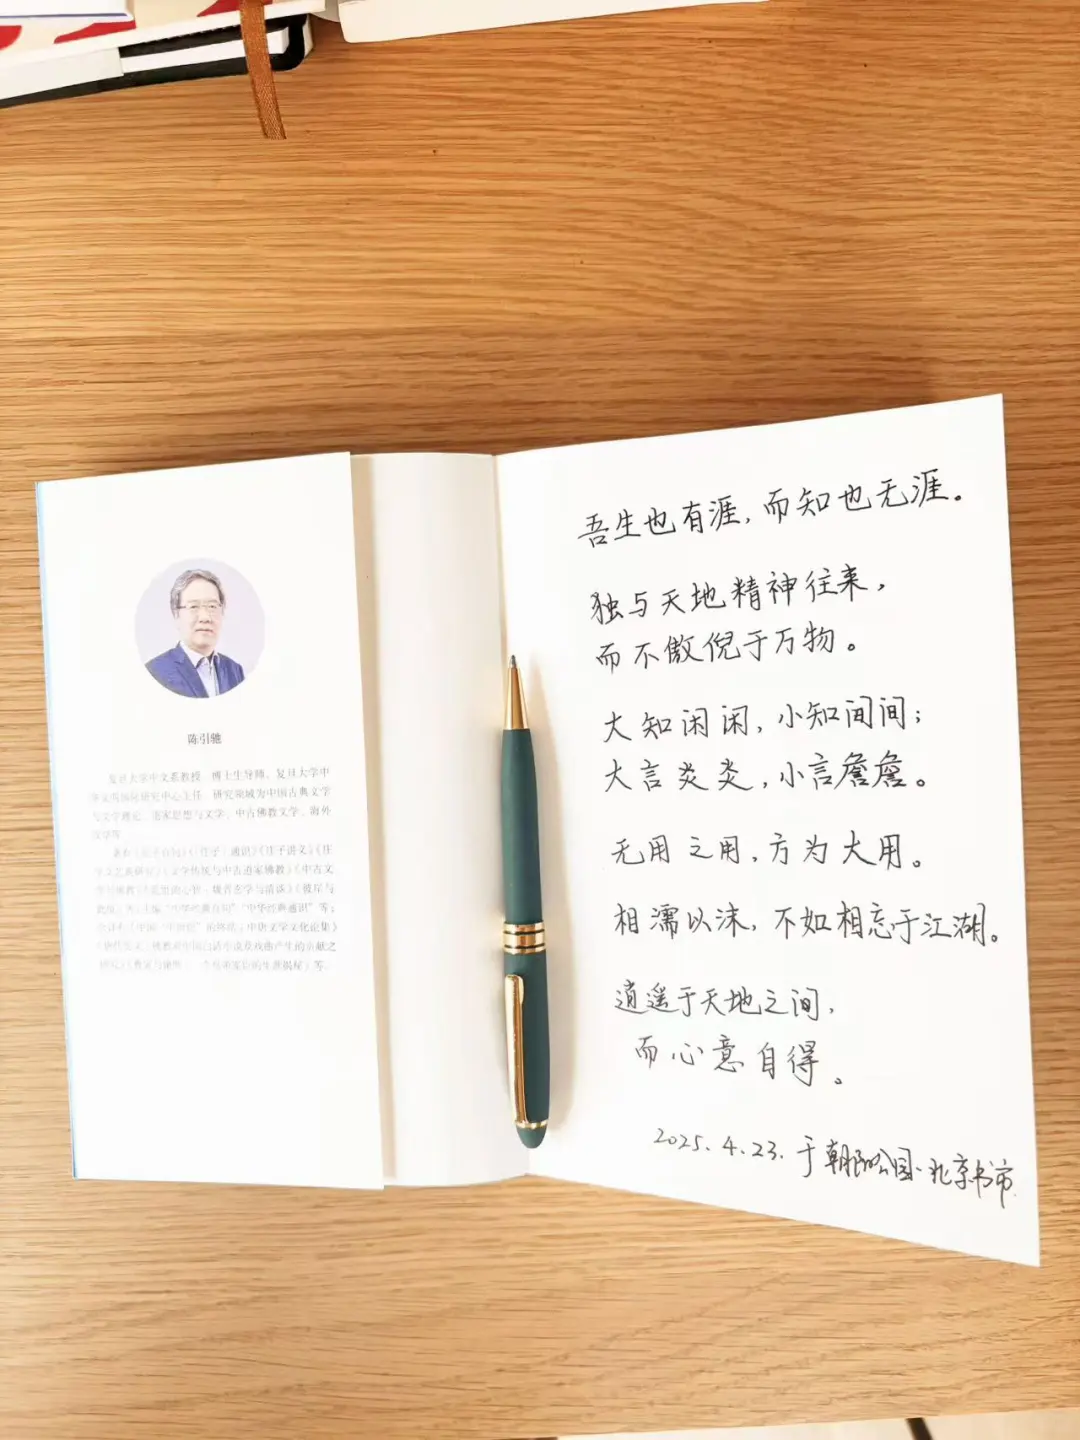 陈引驰
复旦大学中文系教授、博士生导师，复旦大学中
研究中心主任。研究领域为中国古典文学
与文学理论、道家思想与文学、中古佛教文学、海外
汉学等。
《庄子讲义》《庄
《文学传统与中古道家佛教》《中古文
魏晋玄学与清谈》《彼岸与
“中华经典通识”等；
中唐文学文化论集》
吾生也有涯，而知也无涯。
独与天地精神往来，
而不傲倪于万物。
大知闲闲，小知间间；
大言炎炎，小言詹詹。
无用之用，方为大用。
相濡以沫，不如相忘于江湖。
逍遥于天地之间，
而心意自得。
2025.4.23.于朝阳公园·北京书市